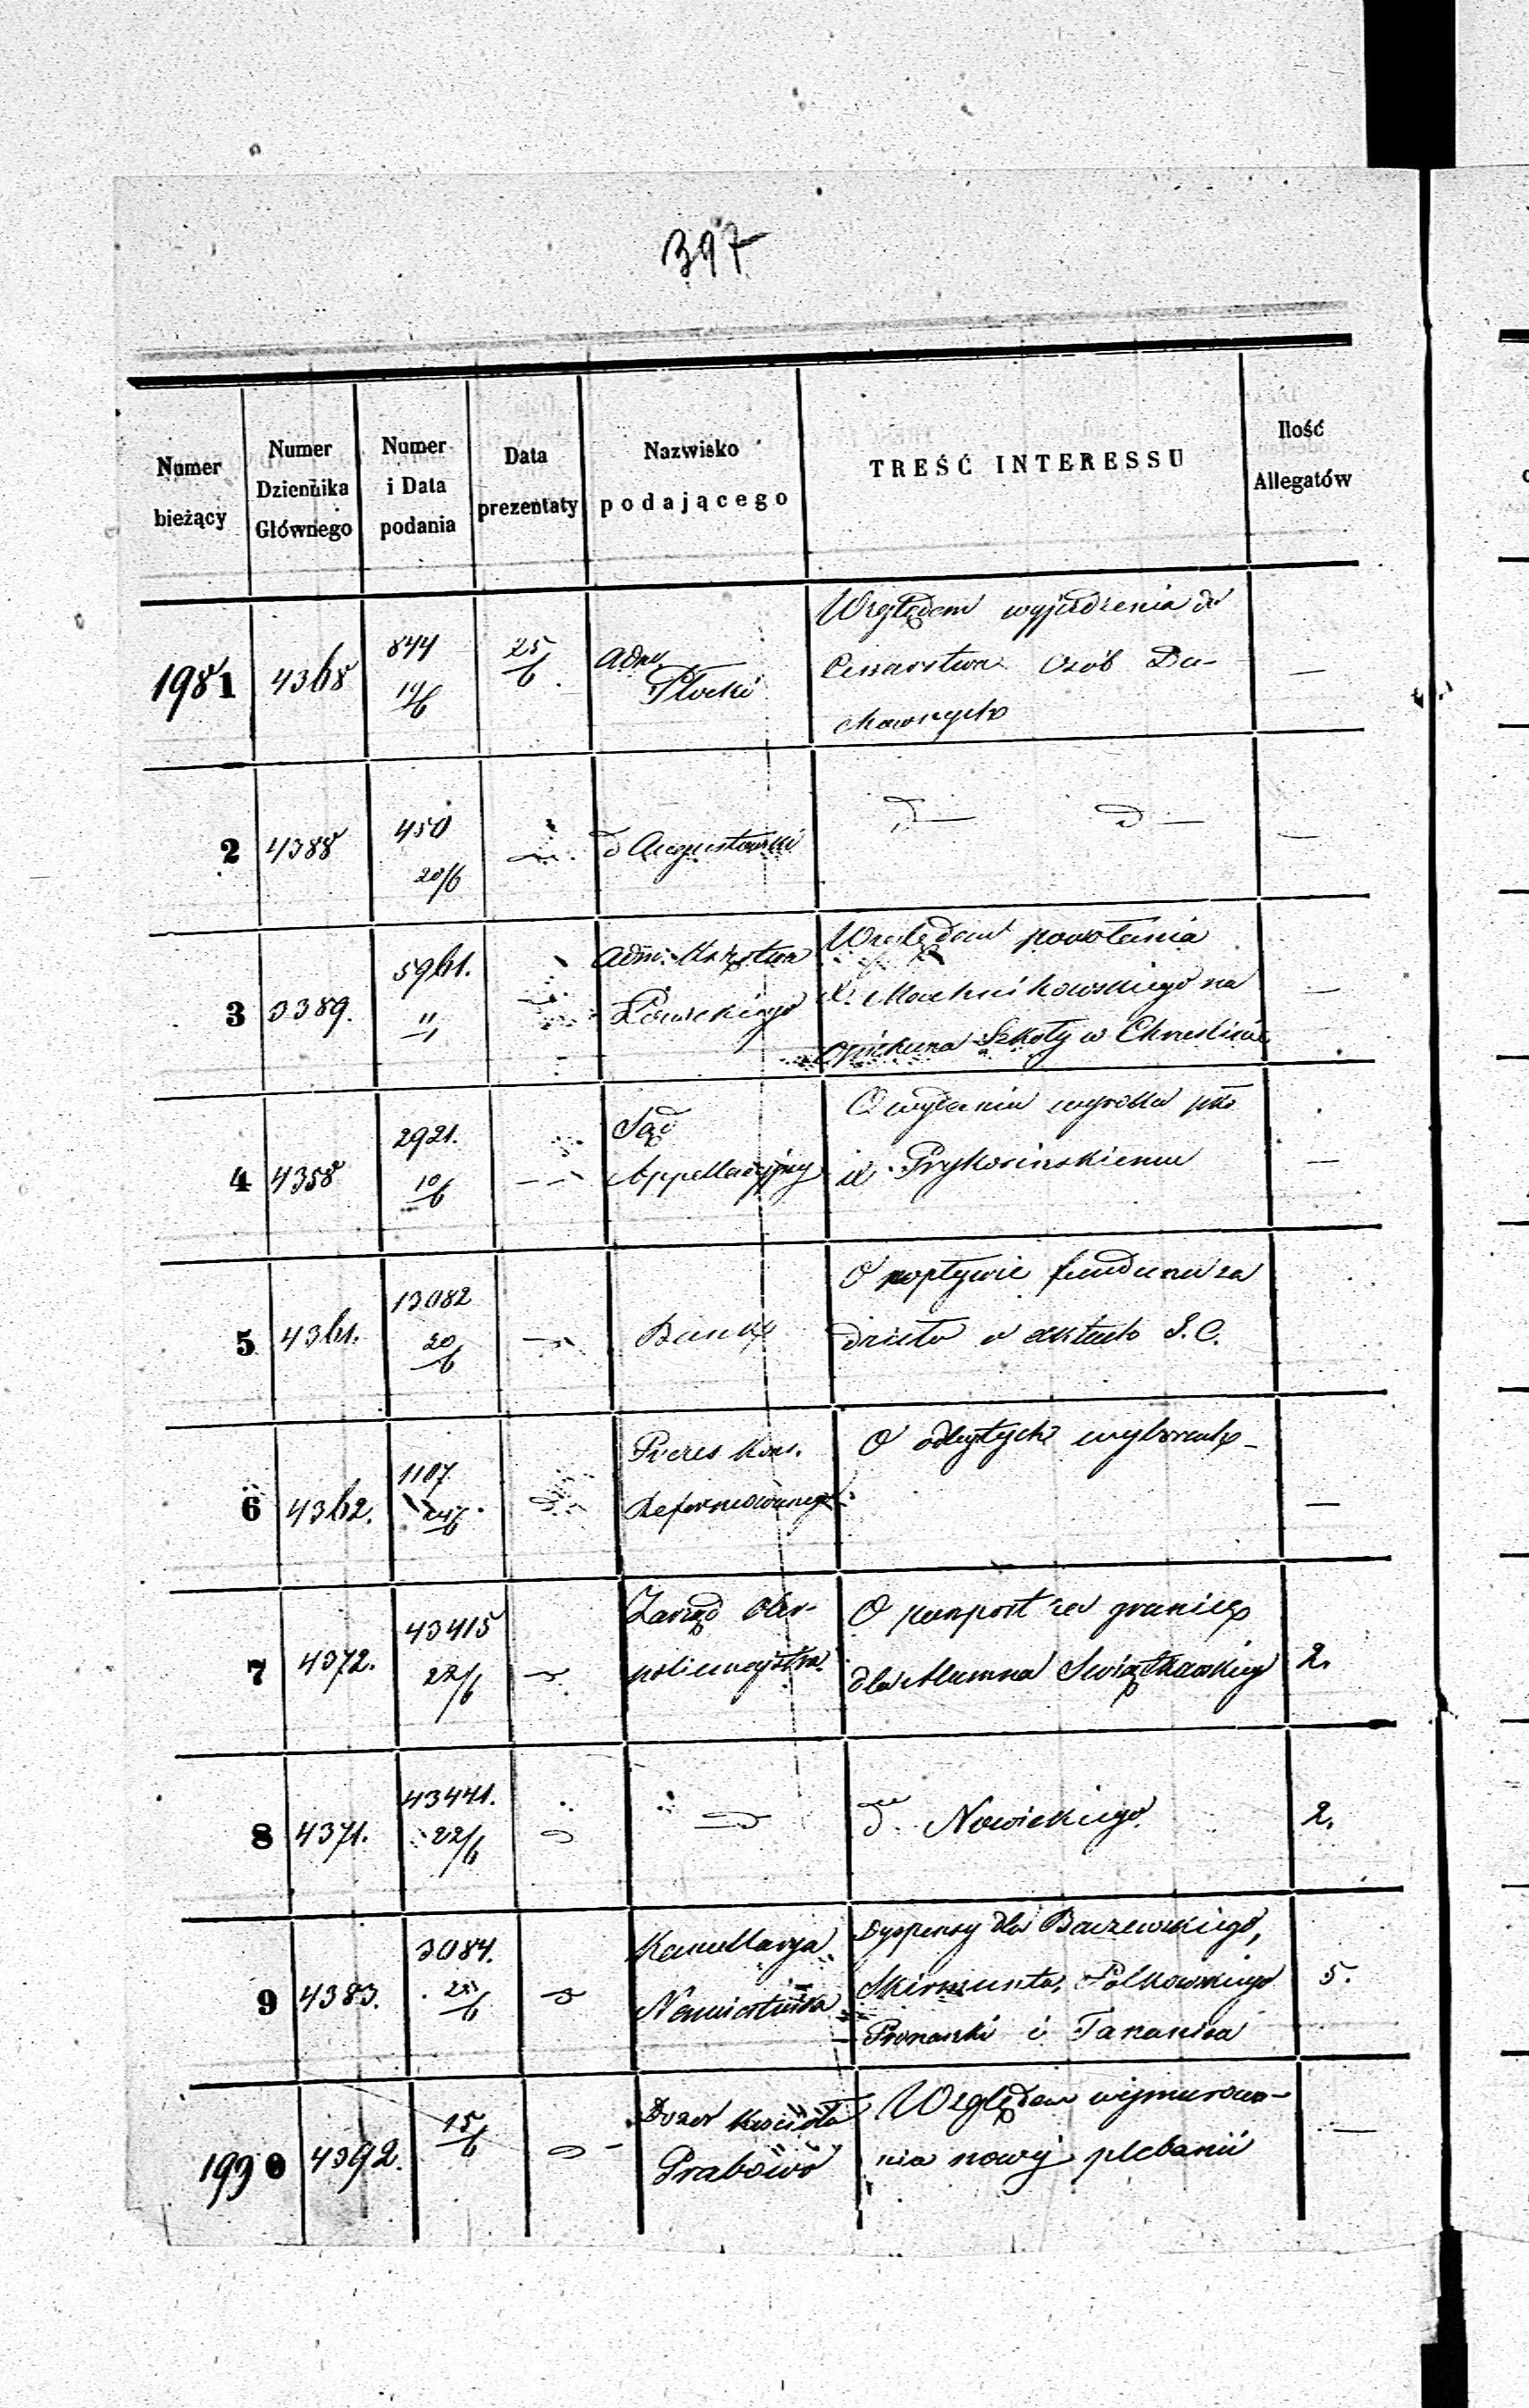 397
Numer bieżący
Numer Dziennika Głównego
Numer i Data podania
Data prezentaty
Nazwisko podającego
TREŚĆ INTERESSU
Ilość Allegatów
1981 4368 844 19/6 25/6 Adm. Płocki
Względem wyjeżdżenia do
Cesarstwa Osób Du-
chownych
—
2 4388 450 20/6 d Augustowski
d— d—
—
3 3389. 5961. " Adm.
Łowickiego
Względem powołania
X. Machnikowskiego na
Opiekuna Szkoły w
—
4 4358 2921. 10/6 — Sąd
Appellacyjny
O wydaniu wyroku pko
X.
—
5 4361. 13082 20/6 Bank
O wpływie funduszu za
dzieło o aktach S. C.
6 4362. 1107 Prezes Kons.
Reformowanego
O odbytych wyborach
—
7 4372. 43415 22/6 Zarząd Ober-
policmajstra
O paszport za granicę
dla Alumna
2.
8 4371. 43441. 22/6 — d
d Nowickiego
2.
9 4383. 3084. Kancellarya
Namiestnika
Dyspensy dla Baczewskiego,
Skirmunta, Polkowskiego
i
5.
1990 4392. 15/6 Dozór Kościoła
Grabowo
Względem wymurowa-
nia nowej plebanii
—